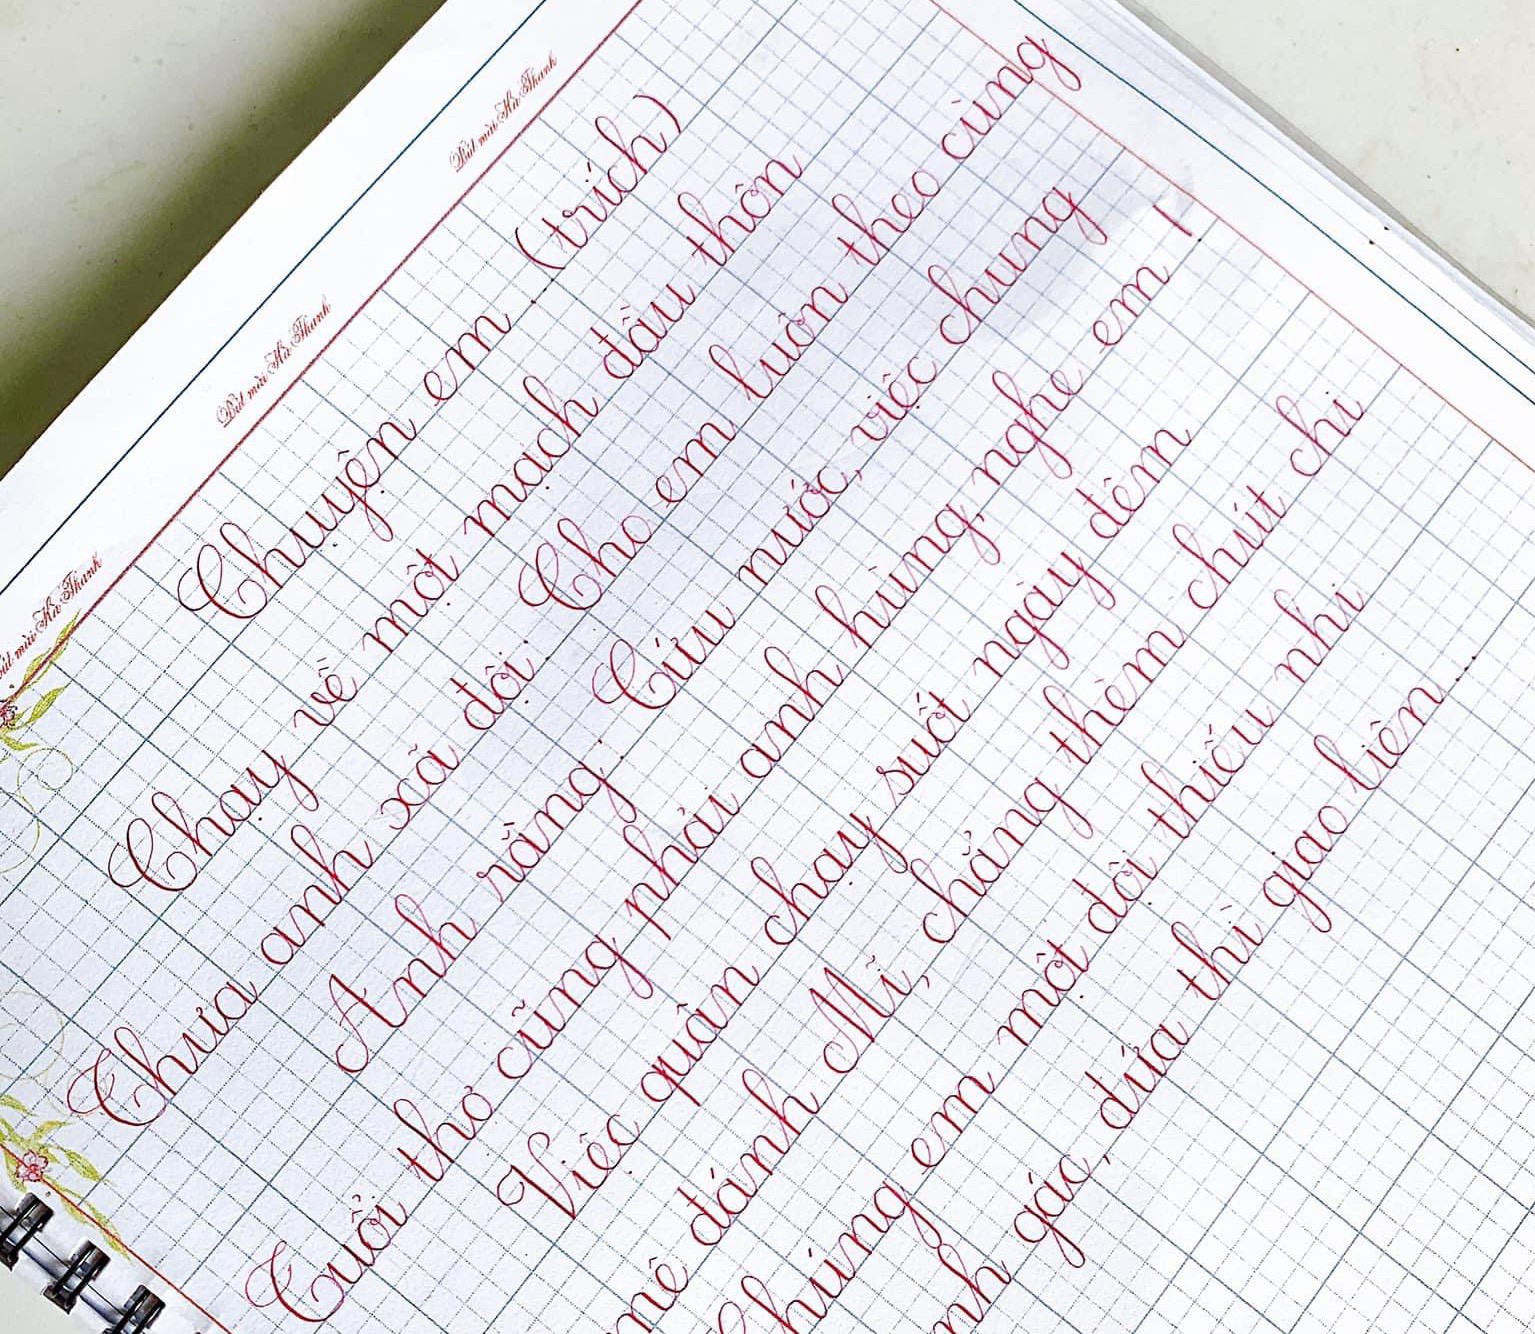 Bút mài Hà Thanh
Bút mài Hà Thanh
Bút mài Hà Thanh
Chuyện em (trích)
Chạy về một mạch đầu thôn
Thưa anh xã đội: Cho em luôn theo cùng
Anh rằng: Cứu nước, việc chung
Tuổi thơ cũng phải anh hùng, nghe em!
Việc quân chạy suốt ngày đêm
mê đánh Mĩ, chẳng thèm chút chi
Chúng em một đội thiếu nhi
gác, đứa thì giao liên.